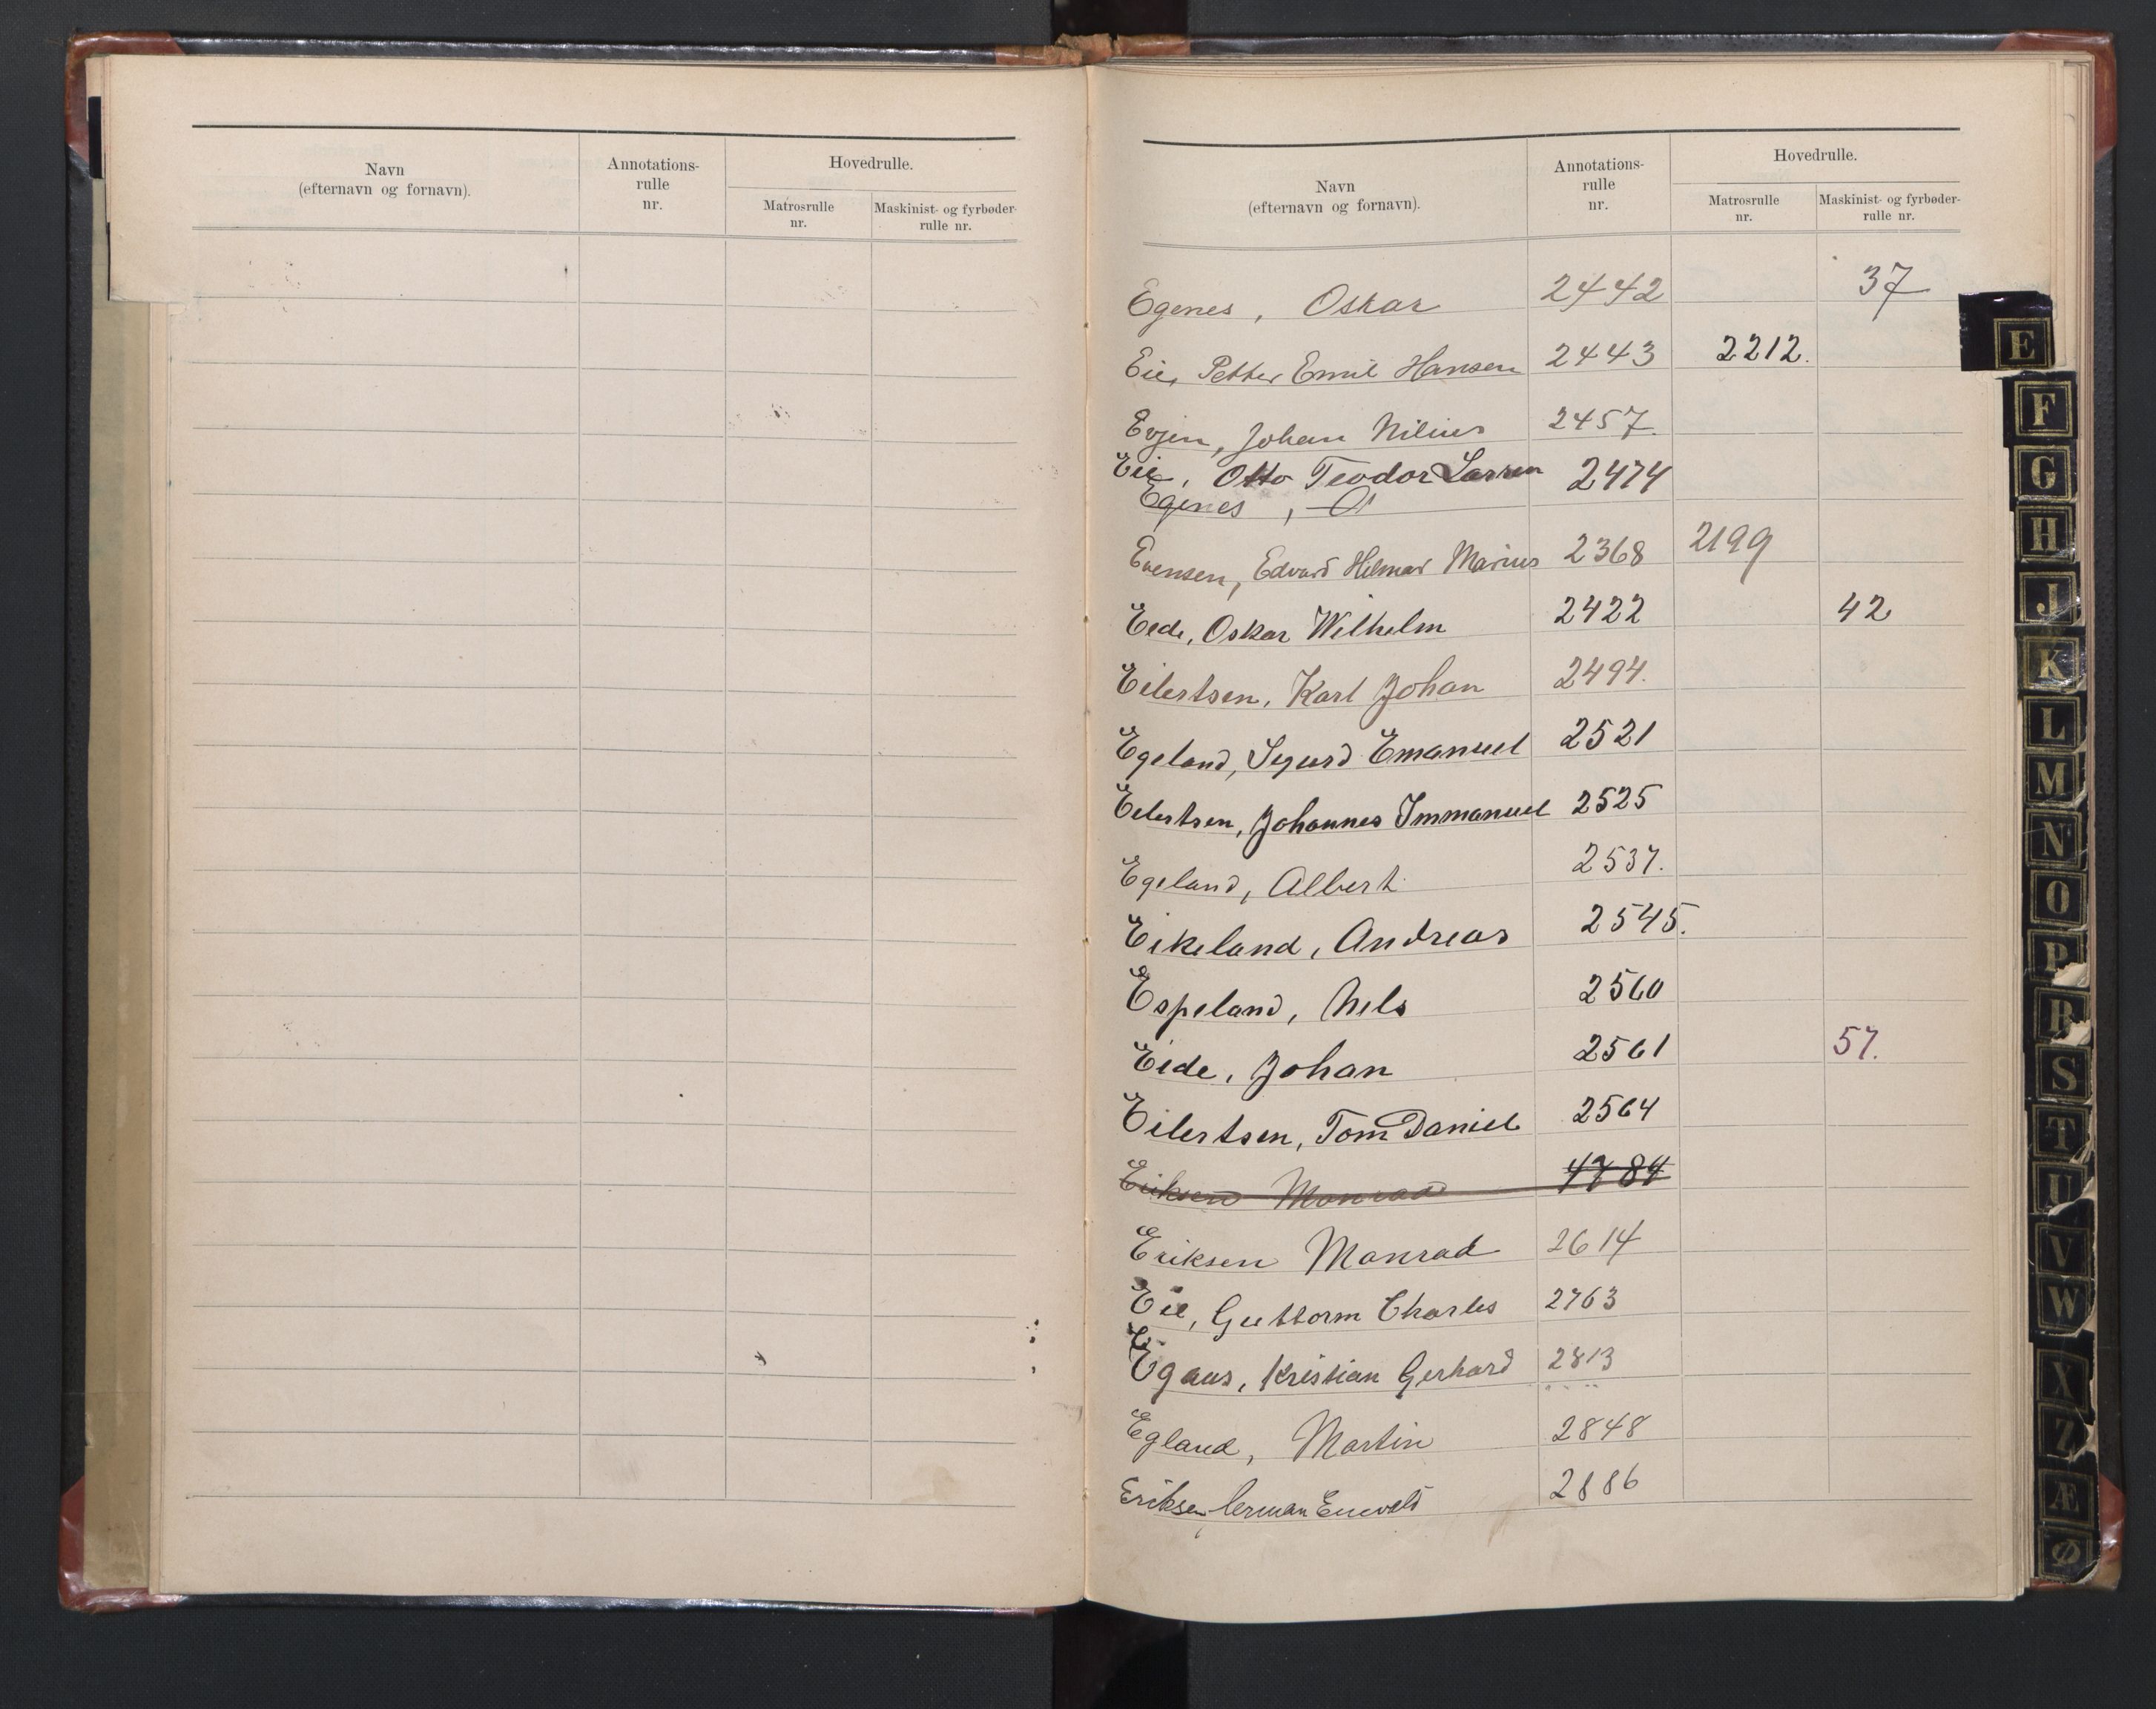 Navn
(efternavn og fornavn).
Annotations-
rulle
nr.
Hovedrulle.
Matrosrulle
nr.
Maskinist- og fyrbøder-
rulle nr.
Navn
(efternavn og fornavn).
Annotations-
rulle
nr.
Hovedrulle.
Matrosrulle
nr.
Maskinist- og fyrbøder-
rulle nr.
Egenes, Oskar 2442 37
Eie, Petter Emil Hansen 2443 2212.
Evjen, Johan Nilius 2457.
Eie, Otto Teodor Larsen 2474
Egenes, O
Evensen, Edvard Hilmar Marius 2368 2199
Eede, Oskar Wilhelm 2422 42
Eilertsen, Karl Johan 2494.
Egeland, Sigurd Emanuel 2521
Eilertsen, Johannes Immanuel 2525
Egeland, Albert 2537.
Eikeland, Andreas 2545.
Espeland, Nils 2560
Eide, Johan 2561 57.
Eilertsen, Tom Daniel 2564
Eriksen Monrad 4784
Eriksen Monrad 2614
Eie, Guttorm Charles 2763
Egaas, Kristian Gerhard 2813
Egland, Martin 2848
Eriksen Herman Enevald 2886
E
F
G
H
J
K
L
M
N
O
P
R
S
T
U
V
W
X
Z
Æ
Ø